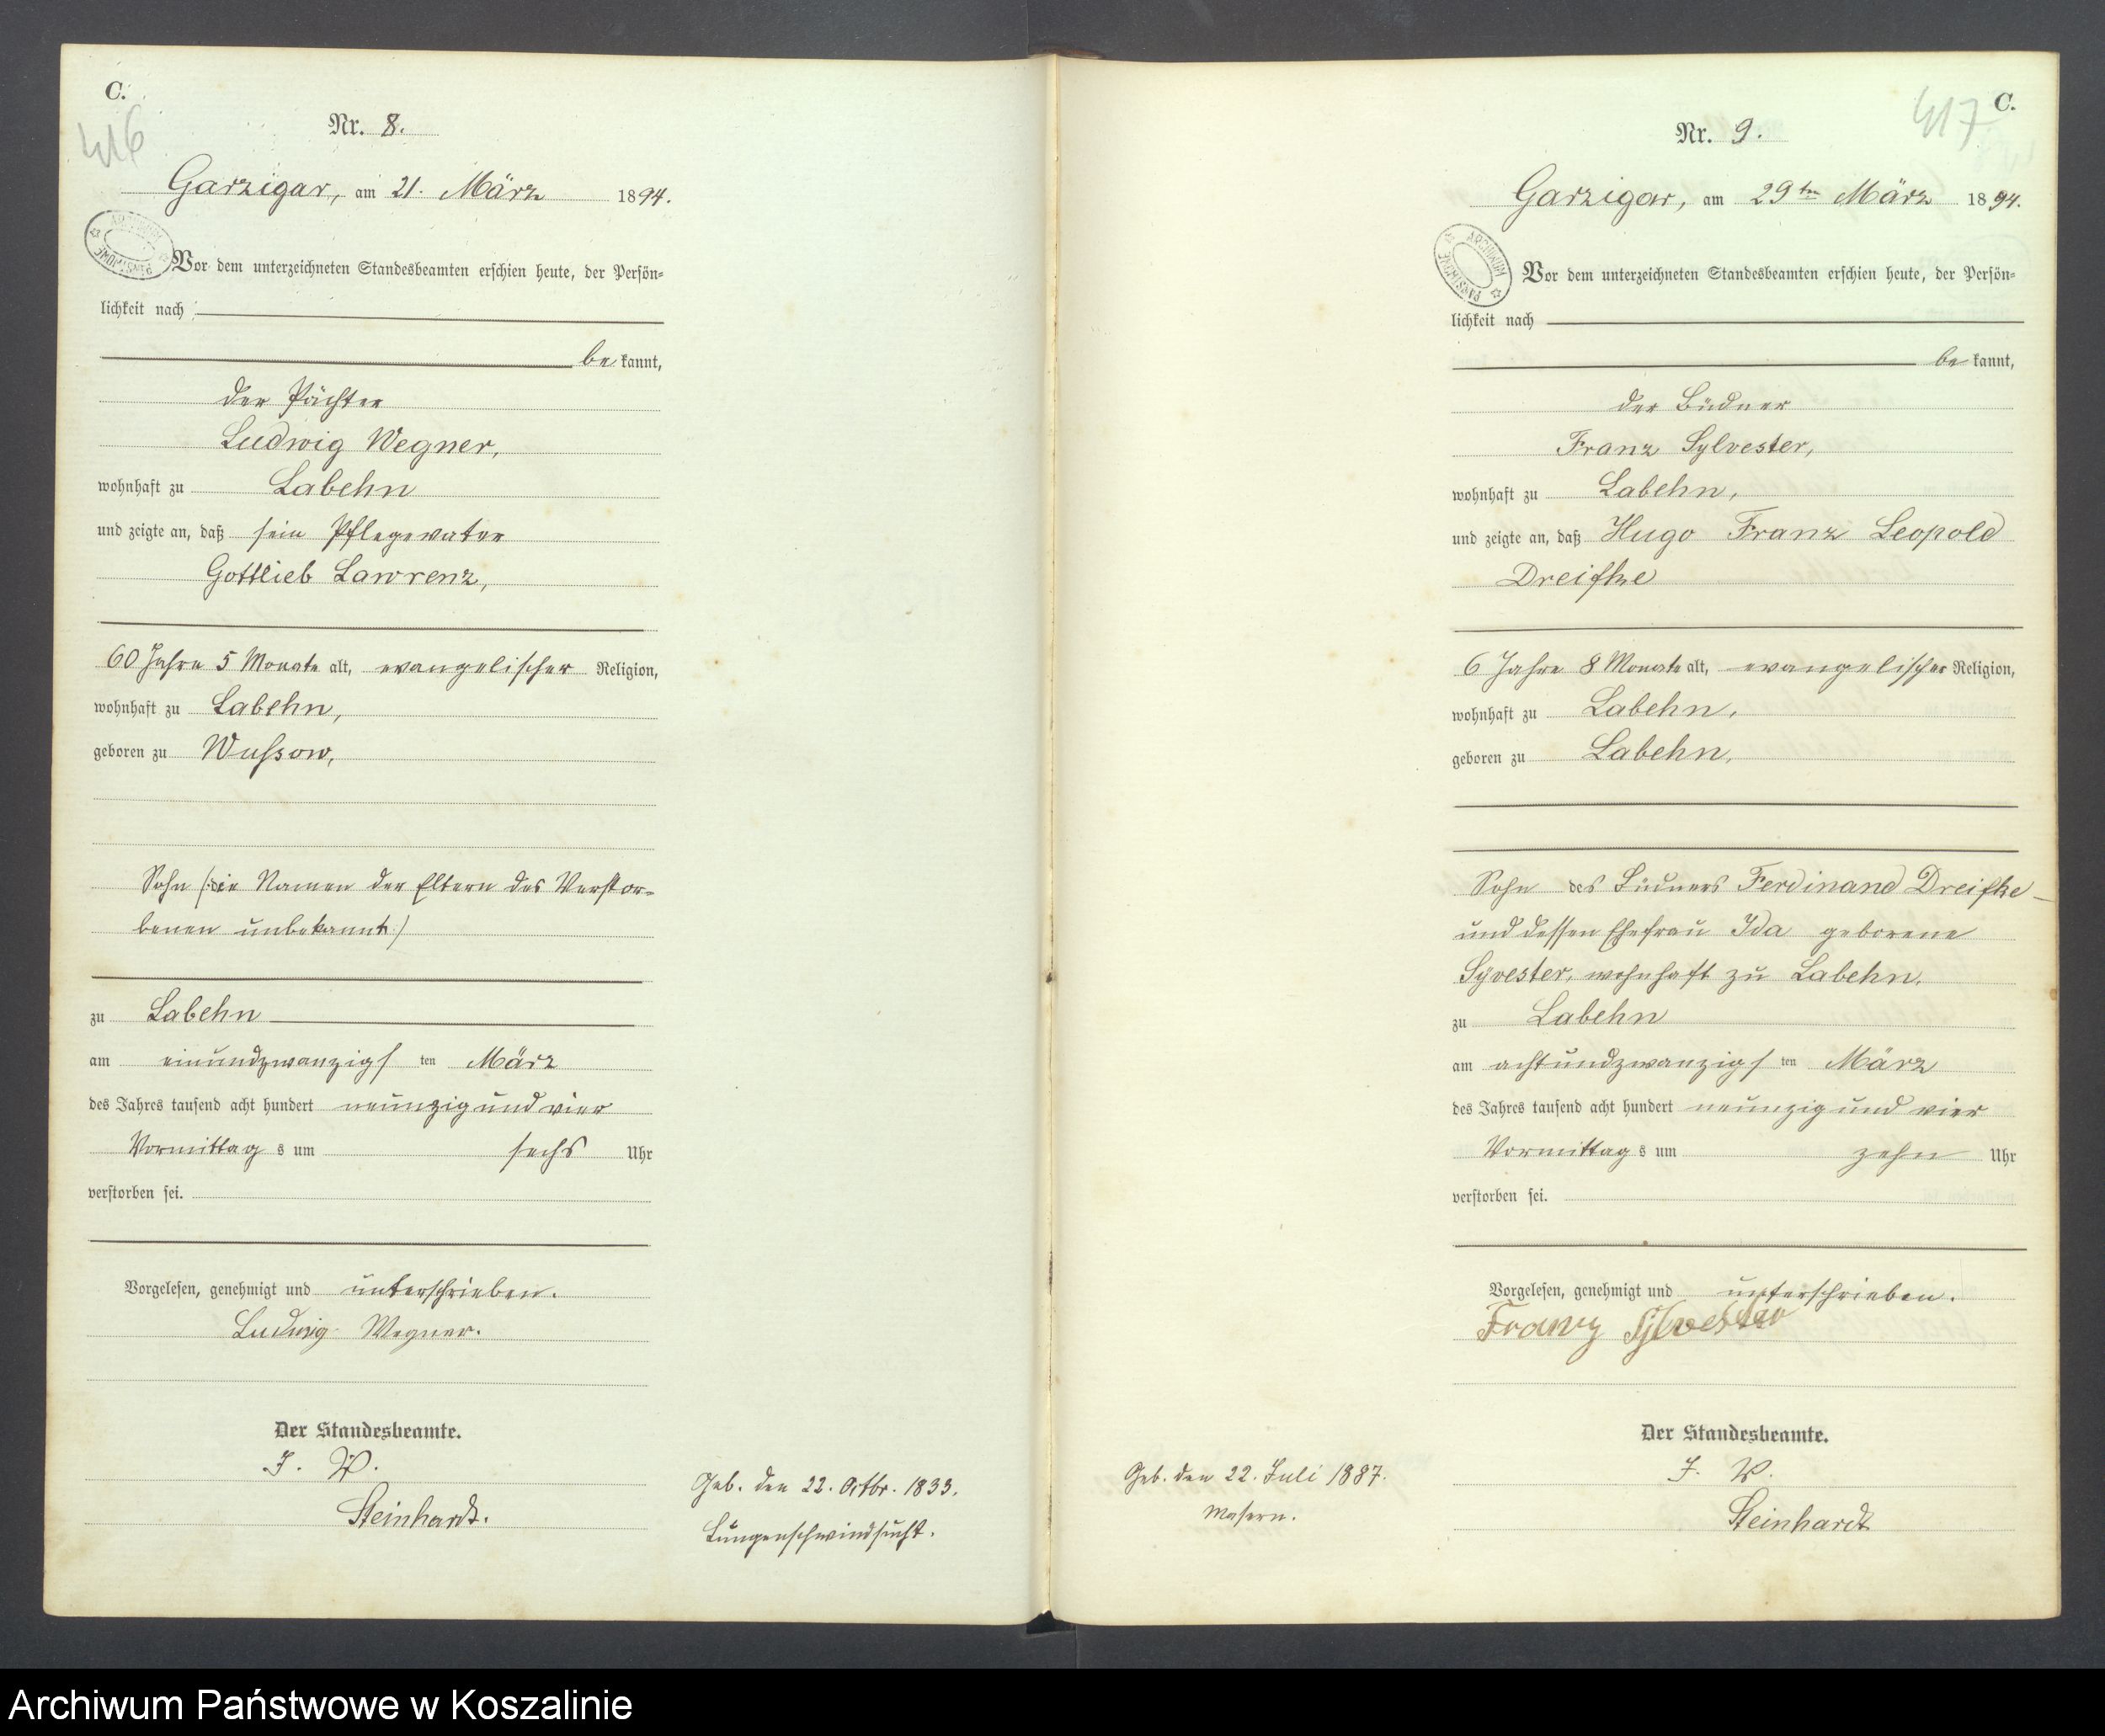 C.
416
Nr. 8.
Garzigar, am 21. März 1894.
Vor dem unterzeichneten Standesbeamten erschien heute, der Persön=
lichkeit nach
be kannt,
der Pächter
Ludwig Wegner,
wohnhaft zu Labehn
und zeigte an, daß sein Pflegevater
Gottlieb Lawrenz,
60 Jahre 5 Monate alt, evangelischer Religion,
wohnhaft zu Labehn,
geboren zu Wussow,
Sohn (die Namen der Eltern des Verstor=
benen unbekannt)
zu Labehn
am einundzwanzigs ten März
des Jahres tausend acht hundert neunzig und vier
Vormittag s um sechs Uhr
verstorben sei.
Vorgelesen, genehmigt und unterschrieben.
Ludwig Wegner.
Der Standesbeamte.
J. V.
Steinhardt.
Geb. den 22. Octbr. 1833.
Lungenschwindsucht.
C.
417
Nr. 9.
Garzigar, am 29ten März 1894.
ARCHIWUM PAŃSTWOWE
Vor dem unterzeichneten Standesbeamten erschien heute, der Persön=
lichkeit nach
be kannt,
der Büdner
Franz Sylvester,
wohnhaft zu Labehn,
und zeigte an, daß Hugo Franz Leopold
Dreifke
6 Jahre 8 Monate alt, evangelischer Religion,
wohnhaft zu Labehn,
geboren zu Labehn,
Sohn des Büdners Ferdinand Dreifke
und dessen Ehefrau Ida geborene
Syvester, wohnhaft zu Labehn,
zu Labehn
am achtundzwanzigs ten März
des Jahres tausend acht hundert neunzig und vier
Vormittag s um zehn Uhr
verstorben sei.
Vorgelesen, genehmigt und unterschrieben.
Franz Sylvester
Der Standesbeamte.
J. V.
Steinhardt
Geb. den 22. Juli 1887.
Masern.
Archiwum Państwowe w Koszalinie